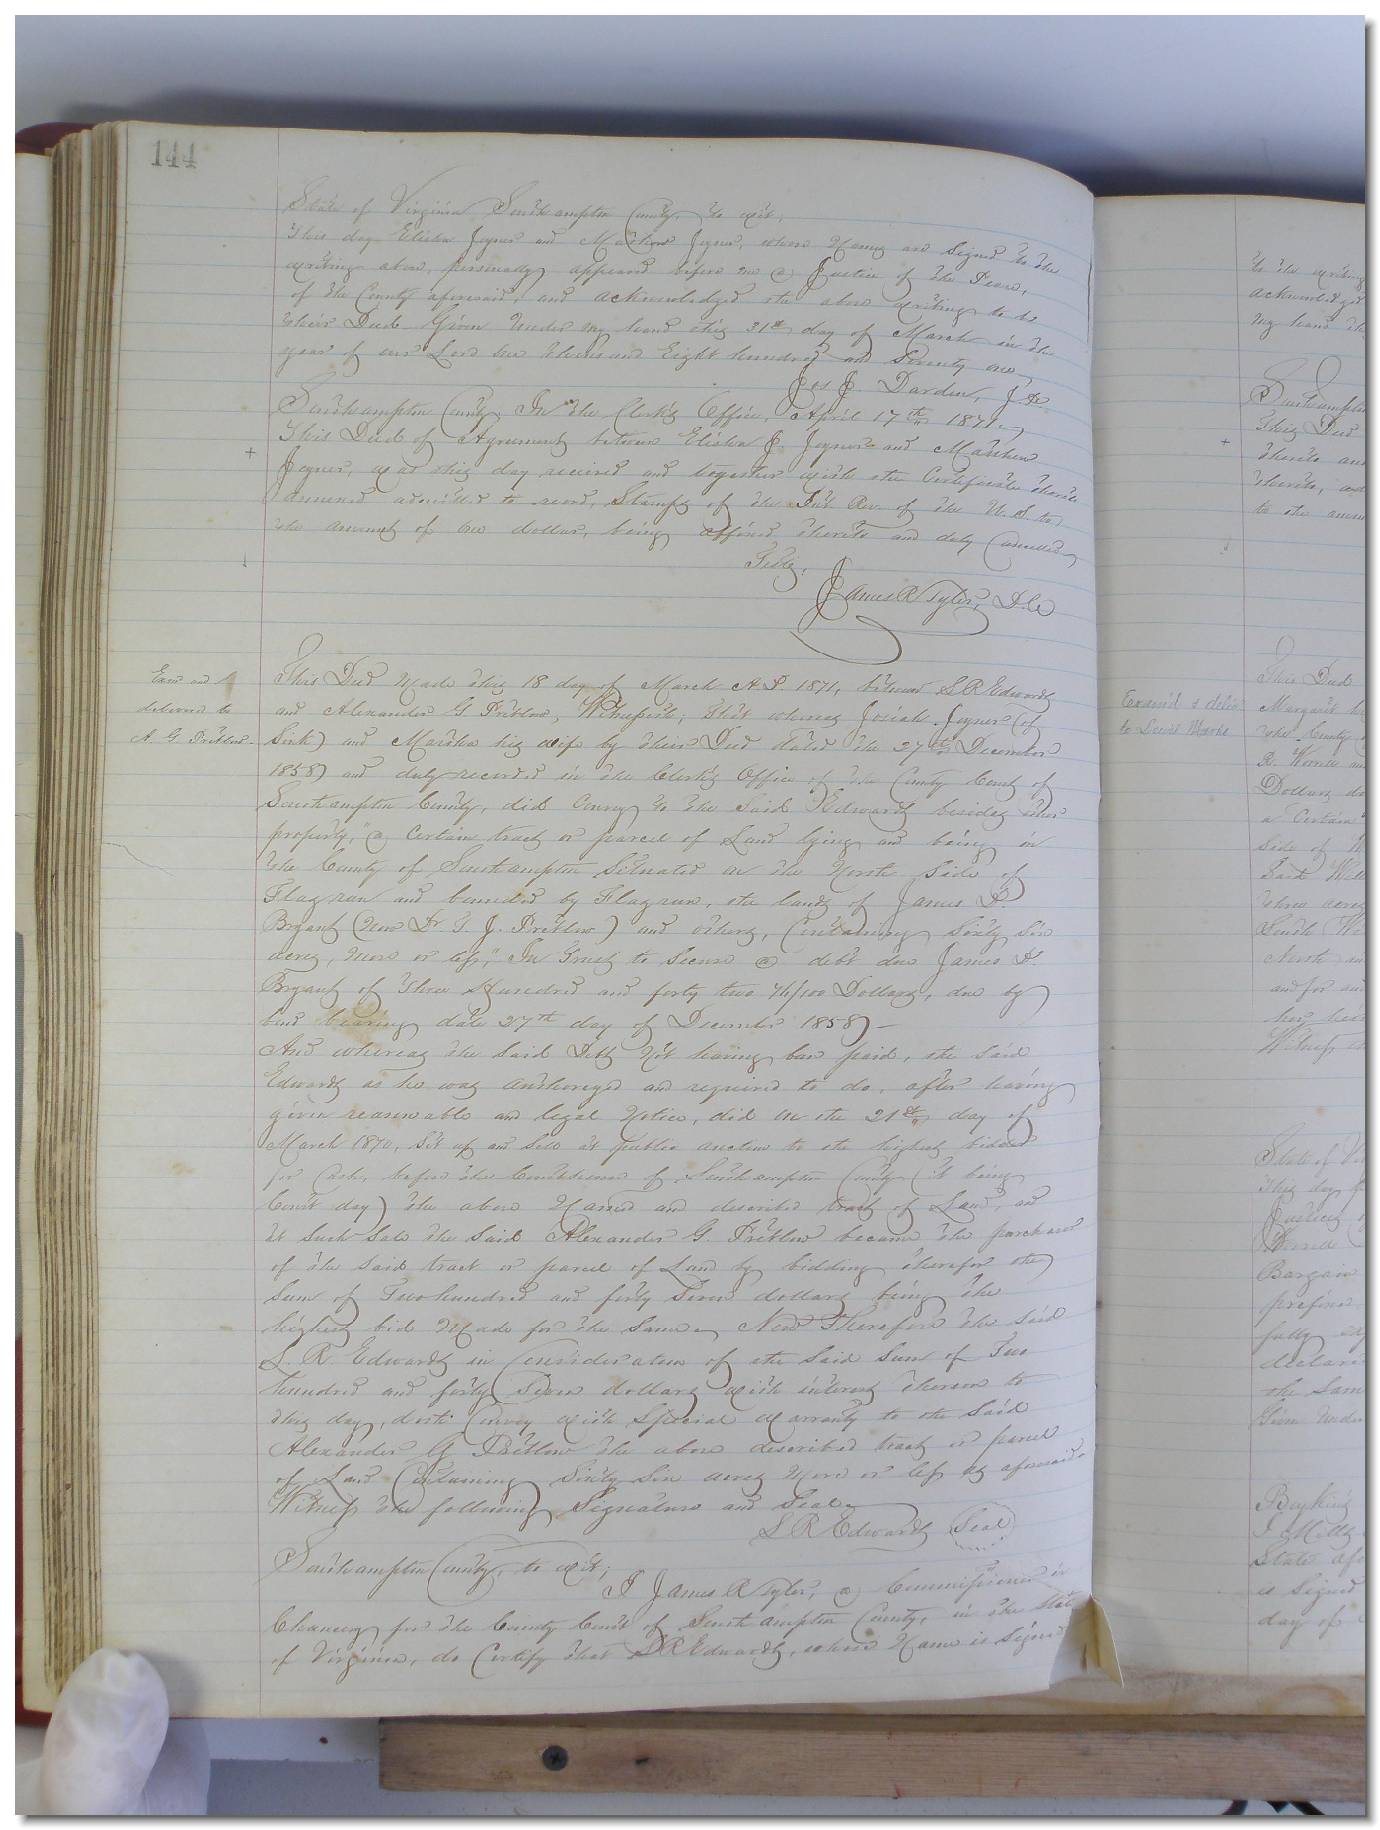 144
State of Virginia Southampton County, to wit;
This day Elisha Joyner and Mathew Joyner, whose Names are Signed to the
writing above, personally appeared before me a Justice of the Peace,
of the County aforesaid, and acknowledged the above writing to be
their Deed Given Under my hand this 31st day of March in the
year of our Lord one thousand Eight hundred and Seventy one
Jas J. Darden, J.P.
Southampton County, In the Clerk's Office, April 17th 1871.
This Deed of Agreement between Elisha J. Joyner and Mathew
Joyner, was this day received and together with the Certificate thereto
Annexed admitted to record, Stamps of the Int. Rev. of the U.S. to
the amount of one dollar, being affixed thereto and duly Cancelled
Teste;
James R Tyler, D.C.
Exmd and
delivered to
A. G. Pretlow
This Deed Made this 18 day of March A D 1871, between L R Edwards
and Alexander G Pretlow, Witnesseth; that whereas Josiah Joyner (of
) and Martha his wife by their Deed dated the 27th December
1858 and duly recorded in the Clerk's Office of the County Court of
Southampton County, did Convey to the Said Edwards besides other
property, "a Certain tract or parcel of Land lying and being in
the County of Southampton Situated on the North Side of
Flagrun and bounded by Flagrun, the lands of James D.
Bryant (Now Dr. T. J. Pretlow) and others, Containing Sixty Six
acres, More or less," In Trust to Secure a debt due James D.
Bryant of Three Hundred and forty two 76/100 Dollars, due by
bond bearing date 27th day of December 1858 -
And whereas the Said Debt Not having been paid, the Said
Edwards as he was Authorized and required to do, after having
given reasonable and legal Notice, did on the 21st day of
March 1870, Set up and Sell at public auction to the highest bidder
for Cash, before the Courthouse of Southampton County (it being
Court day) the above Named and described tract of Land, and
At Such Sale the Said Alexander G. Pretlow became the purchaser
of the Said tract or parcel of Land by bidding therefor the
Sum of Two hundred and forty Seven dollars being the
highest bid Made for the Same. Now Therefore the Said
L. R. Edwards in Consideration of the Said Sum of Two
hundred and forty Seven dollars with interest thereon to
this day, doth Convey with Special Warranty to the Said
Alexander G Pretlow the above described tract or parcel
of Land Containing Sixty Six acres More or less as aforesaid.
Witness the following Signature and Seal.
L R Edwards Seal
Southampton County, to wit;
I James R Tyler, a Commissioner in
Chancery for the County Court of Southampton County, in the State
of Virginia, do Certify that L R Edwards, whose Name is Signed
to the writing
acknowledged
my hand
Southampton
This Deed
thereto and
thereto,
to the amount
Exam'd & deliv
to
This Deed
Margaret
the County
R. Worrell
Dollars
a Certain
Side of
Said
three acres
South
North
and for
Witness
State of Vi
This day
Justices
Worrell
Bargain
fully
declared
the Same
Given Under
Boykins
State afo
is Signed
day of